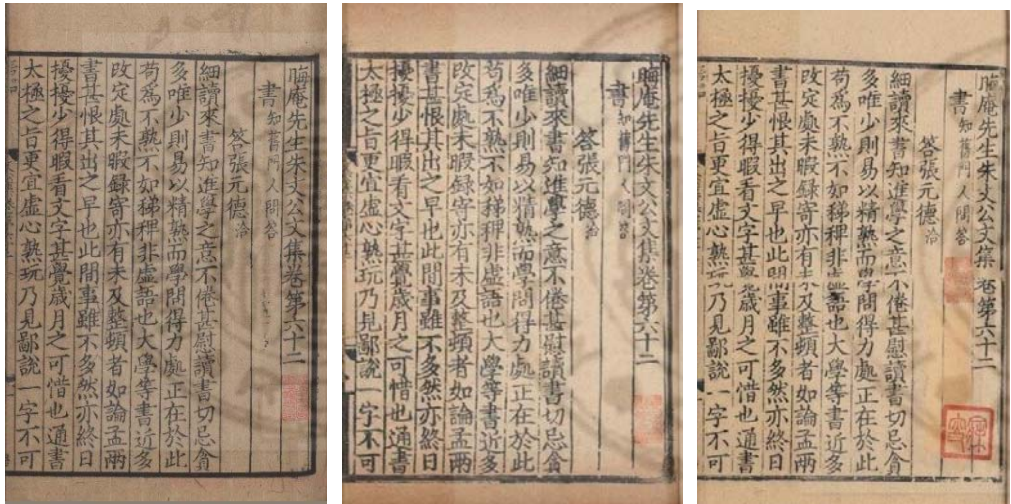 晦庵先生朱文公文集卷第六十二
書知舊門人問答
答張元德洽
細讀來書知進學之意不倦甚慰讀書切忌貪
多唯少則易以精熟而學問得力處正在於此
苟爲不熟不如稊稗非虛語也大學等書近多
改定處未暇錄寄亦有未及整頓者如論孟兩
書甚恨其出之早也此間事雖不多然亦終日
擾擾少得暇看文字甚覺歲月之可惜也通書
太極之旨更宜虛心熟玩乃見鄙說一字不可
晦庵先生朱文公文集卷第六十二
書知舊門人問答
答張元德洽
細讀來書知進學之意不倦甚慰讀書切忌貪
多唯少則易以精熟而學問得力處正在於此
苟爲不熟不如稊稗非虛語也大學等書近多
改定處未暇錄寄亦有未及整頓者如論孟兩
書甚恨其出之早也此間事雖不多然亦終日
擾擾少得暇看文字甚覺歲月之可惜也通書
太極之旨更宜虛心熟玩乃見鄙說一字不可
晦庵先生朱文公文集卷第六十二
書知舊門人問答
答張元德洽
細讀來書知進學之意不倦甚慰讀書切忌貪
多唯少則易以精熟而學問得力處正在於此
苟爲不熟不如稊稗非虛語也大學等書近多
改定處未暇錄寄亦有未及整頓者如論孟兩
書甚恨其出之早也此間事雖不多然亦終日
擾擾少得暇看文字甚覺歲月之可惜也通書
太極之旨更宜虛心熟玩乃見鄙說一字不可